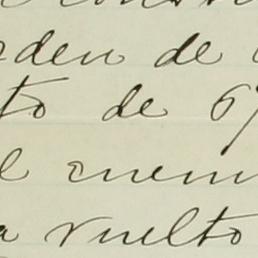 orden de
to de 67
l enem
a vuelto